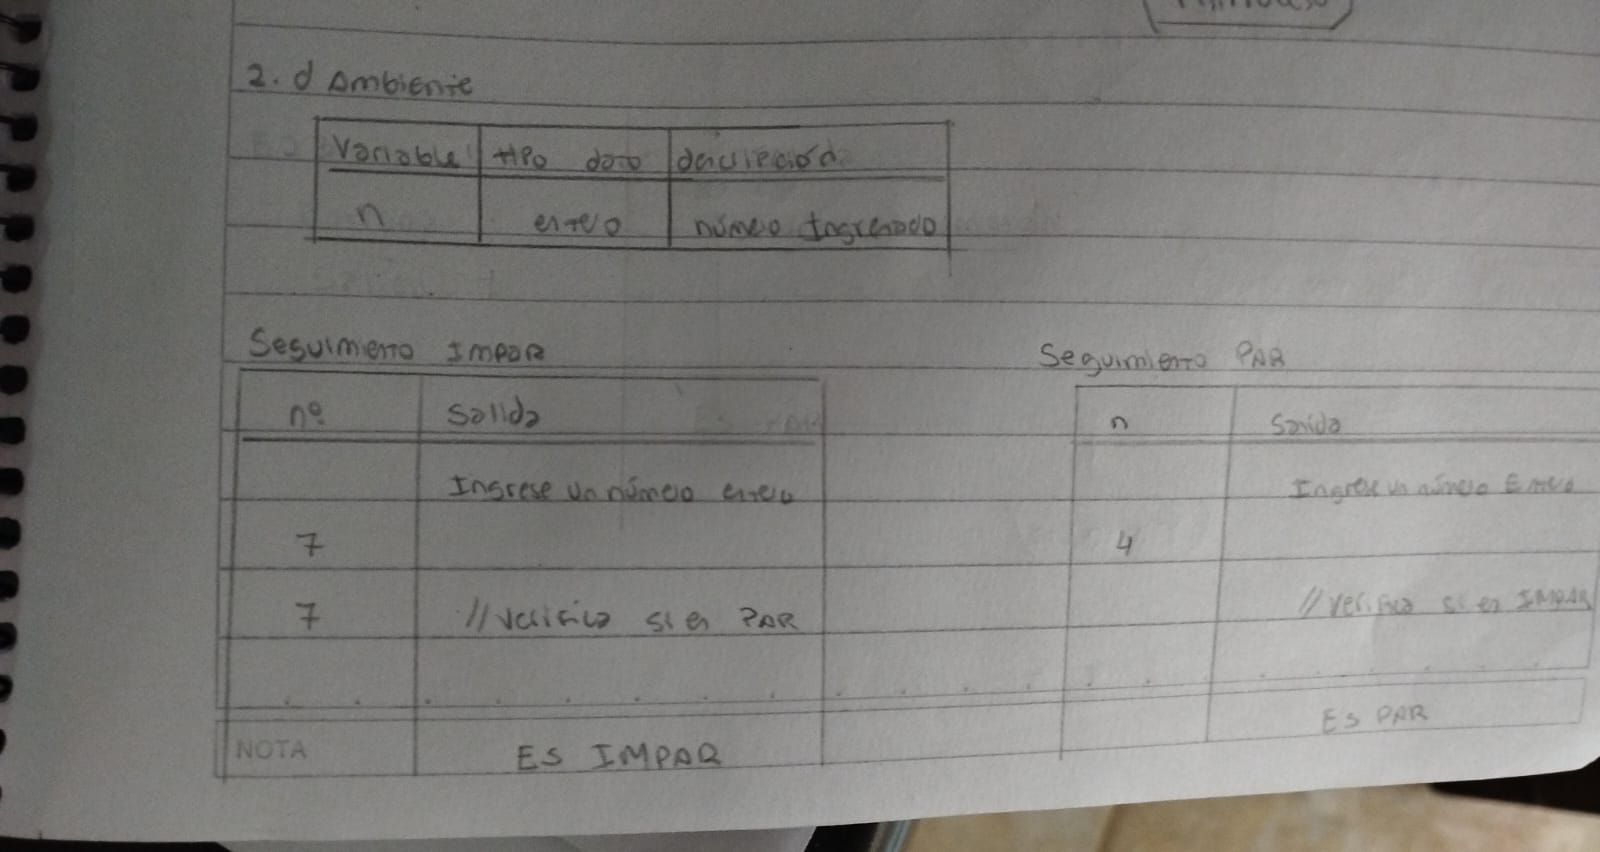 2. d Ambiente
Variable tipo dato descripción
n entero número Ingresado
Seguimiento IMPAR
nº Salida
Ingrese un número entero
7
7 //verifica si es PAR
NOTA ES IMPAR
Seguimiento PAR
n Salida
Ingrese un número Entero
4
//verifica si es IMPAR
ES PAR